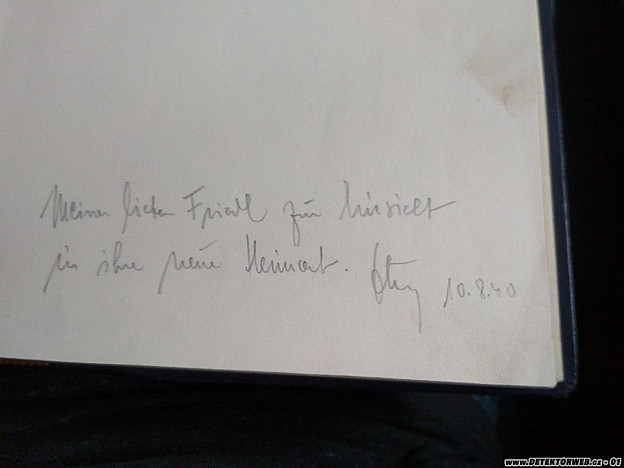 Meiner lieben Friedl zur
in ihre neue Heimat. 10.8.40
www.DETEKTORWEB.cz - 01